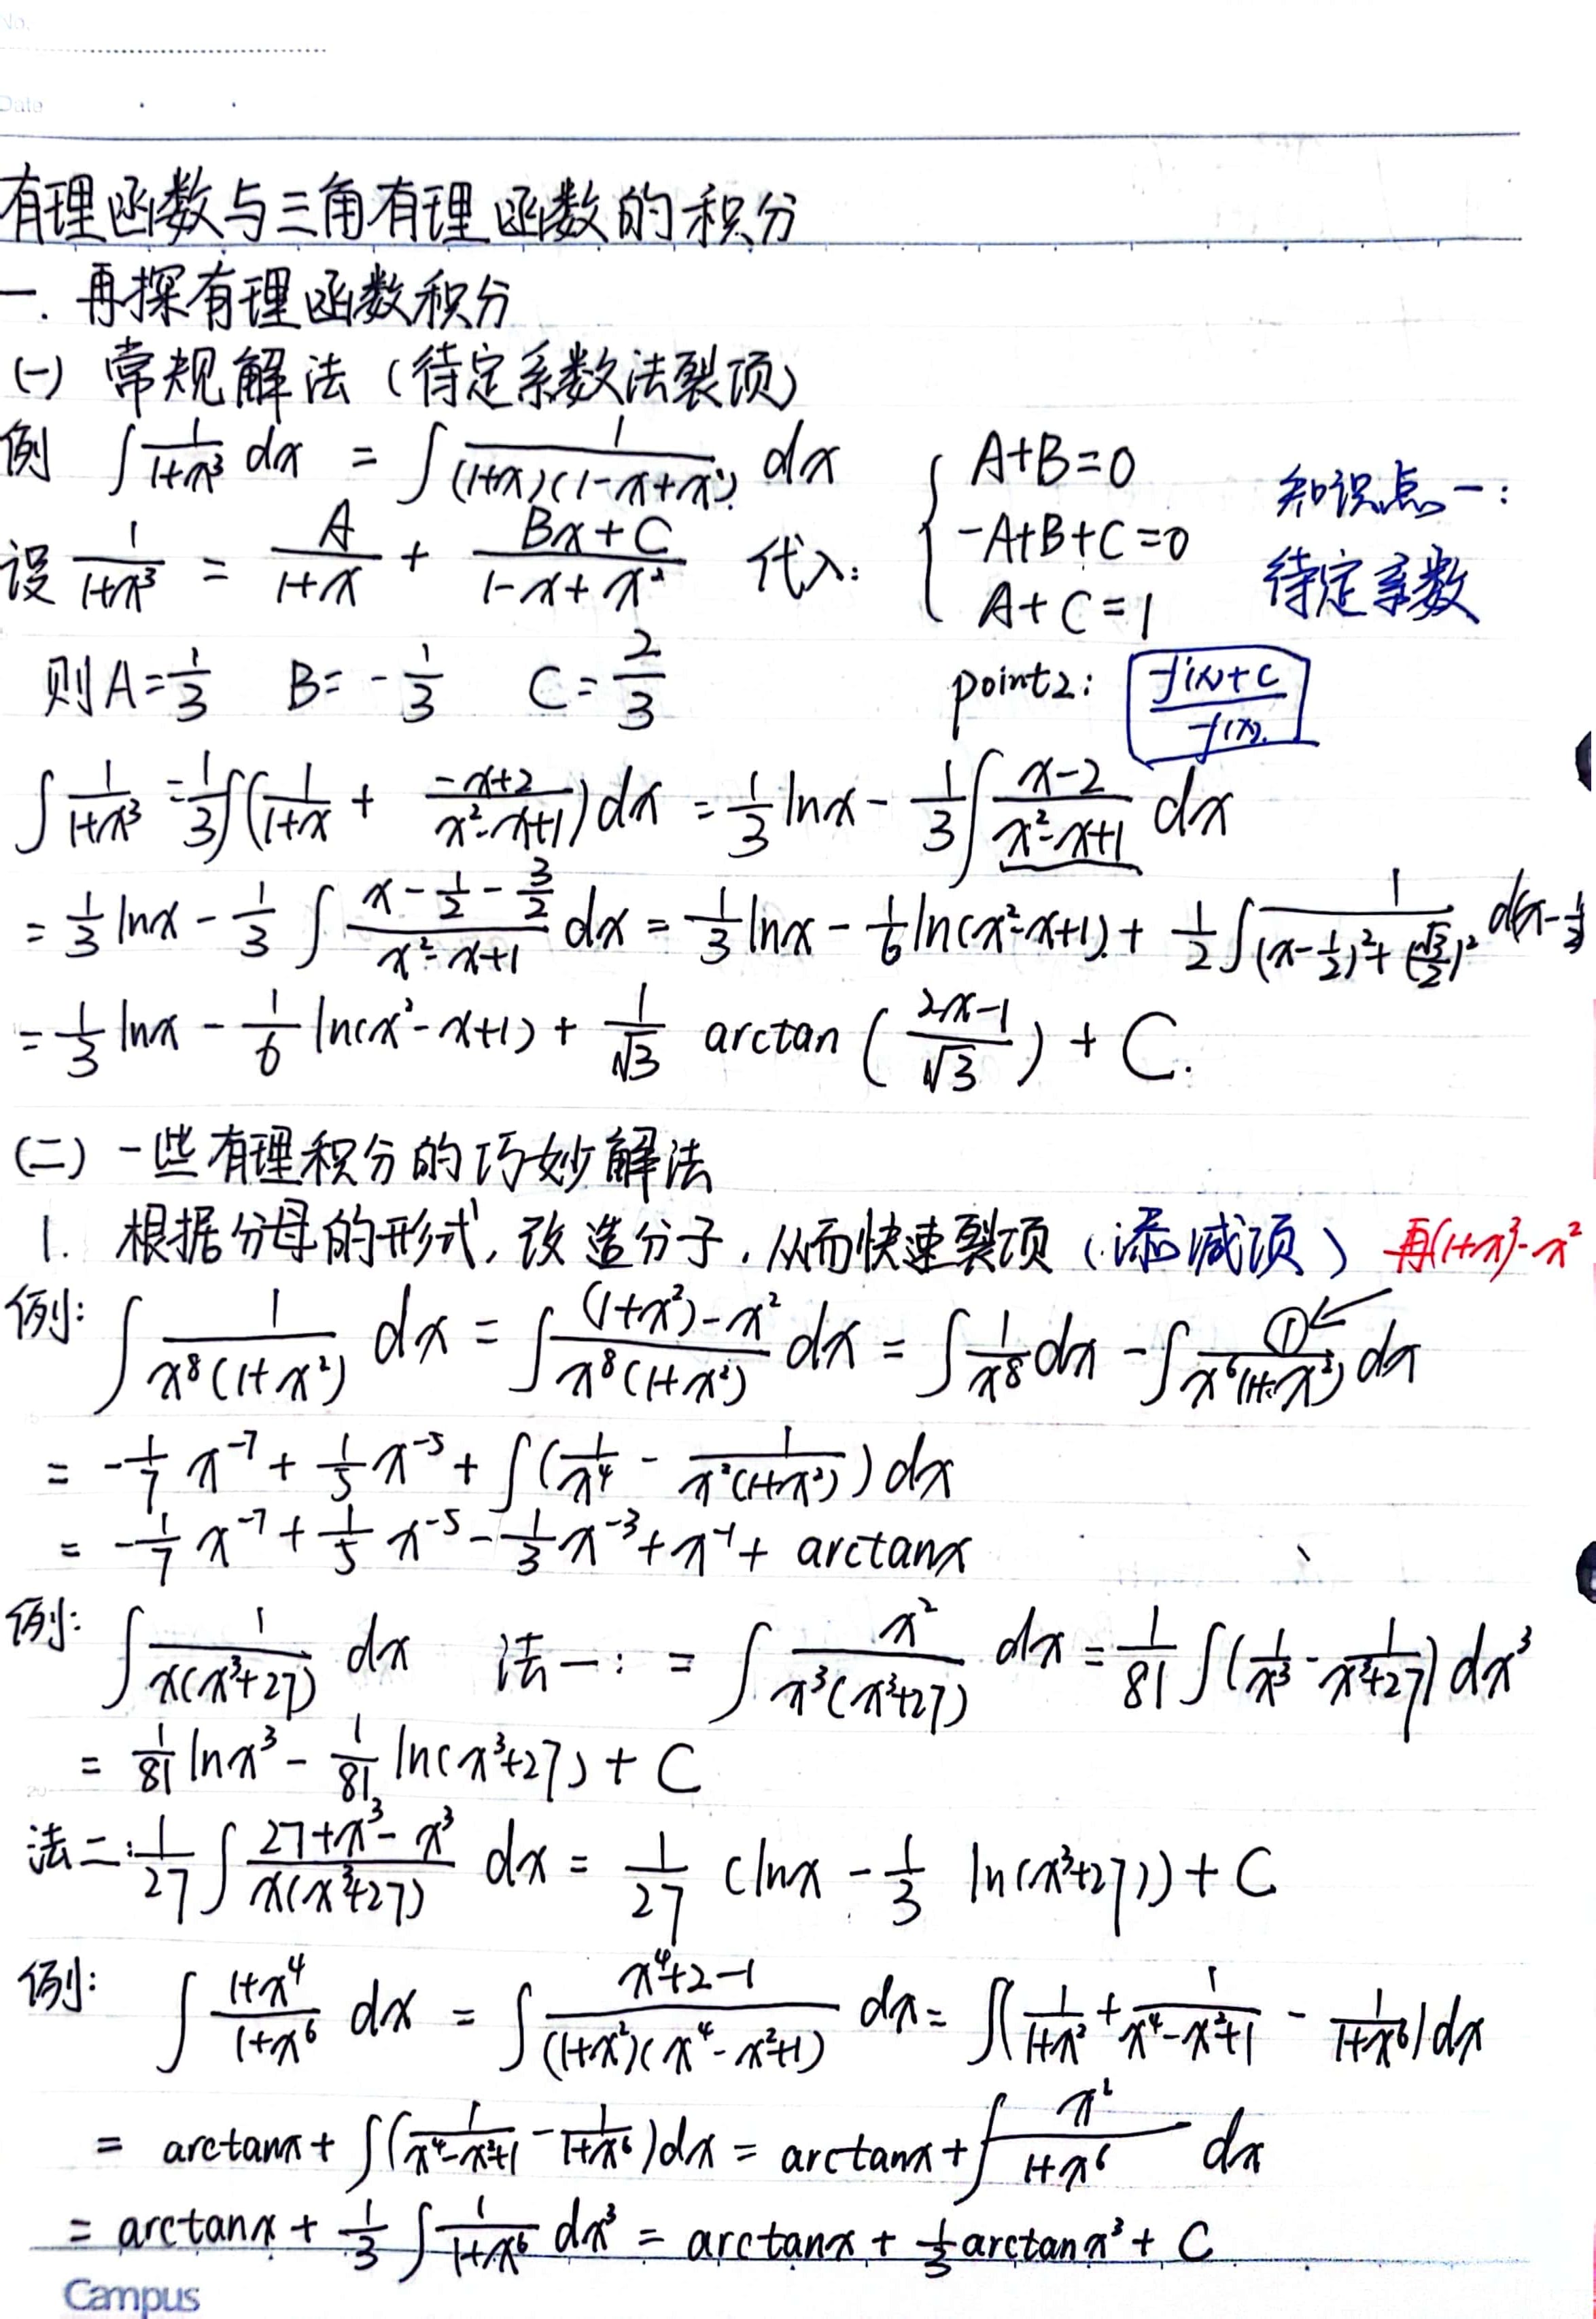 No.
Date
有理函数与三角有理函数的积分
一. 再探有理函数积分
(一) 常规解法 (待定系数法裂项)
例 ∫ 1/(1+x³) dx = ∫ 1/((1+x)(1-x+x²)) dx
设 1/(1+x³) = A/(1+x) + (Bx+C)/(1-x+x²) 代入:
{ A+B=0
-A+B+C=0
A+C=1
知识点一:
待定系数
则A=1/3 B=-1/3 C=2/3
point2: (f'(x)+C)/f(x)
∫ 1/(1+x³) = 1/3 ∫(1/(1+x) + (-x+2)/(x²-x+1)) dx = 1/3 lnx - 1/3 ∫ (x-2)/(x²-x+1) dx
= 1/3 lnx - 1/3 ∫ (x-1/2-3/2)/(x²-x+1) dx = 1/3 lnx - 1/6 ln(x²-x+1) + 1/2 ∫ 1/((x-1/2)²+(√3/2)²) d(x-1/2
= 1/3 lnx - 1/6 ln(x²-x+1) + 1/√3 arctan ( (2x-1)/√3 ) + C.
(二) 一些有理积分的巧妙解法
1. 根据分母的形式, 改造分子, 从而快速裂项 (添减项) 再(1+x²)-x²
例: ∫ 1/(x⁸(1+x²)) dx = ∫ ((1+x²)-x²)/(x⁸(1+x²)) dx = ∫ 1/x⁸ dx - ∫ ①/(x⁶(1+x²)) dx
= -1/7 x⁻⁷ + 1/5 x⁻⁵ + ∫(1/x⁴ - 1/(x²(1+x²))) dx
= -1/7 x⁻⁷ + 1/5 x⁻⁵ - 1/3 x⁻³ + x⁻¹ + arctanx
例: ∫ 1/(x(x³+27)) dx 法一: = ∫ x²/(x³(x³+27)) dx = 1/81 ∫(1/x³ - 1/(x³+27)) dx³
= 1/81 lnx³ - 1/81 ln(x³+27) + C
法二: 1/27 ∫ (27+x³-x³)/(x(x³+27)) dx = 1/27 (lnx - 1/3 ln(x³+27)) + C
例: ∫ (1+x⁴)/(1+x⁶) dx = ∫ (x⁴+2-1)/((1+x²)(x⁴-x²+1)) dx = ∫(1/(1+x²) + 1/(x⁴-x²+1) - 1/(1+x⁶)) dx
= arctanx + ∫(1/(x⁴-x²+1) - 1/(1+x⁶)) dx = arctanx + ∫ x²/(1+x⁶) dx
= arctanx + 1/3 ∫ 1/(1+x⁶) dx³ = arctanx + 1/3 arctanx³ + C
Campus